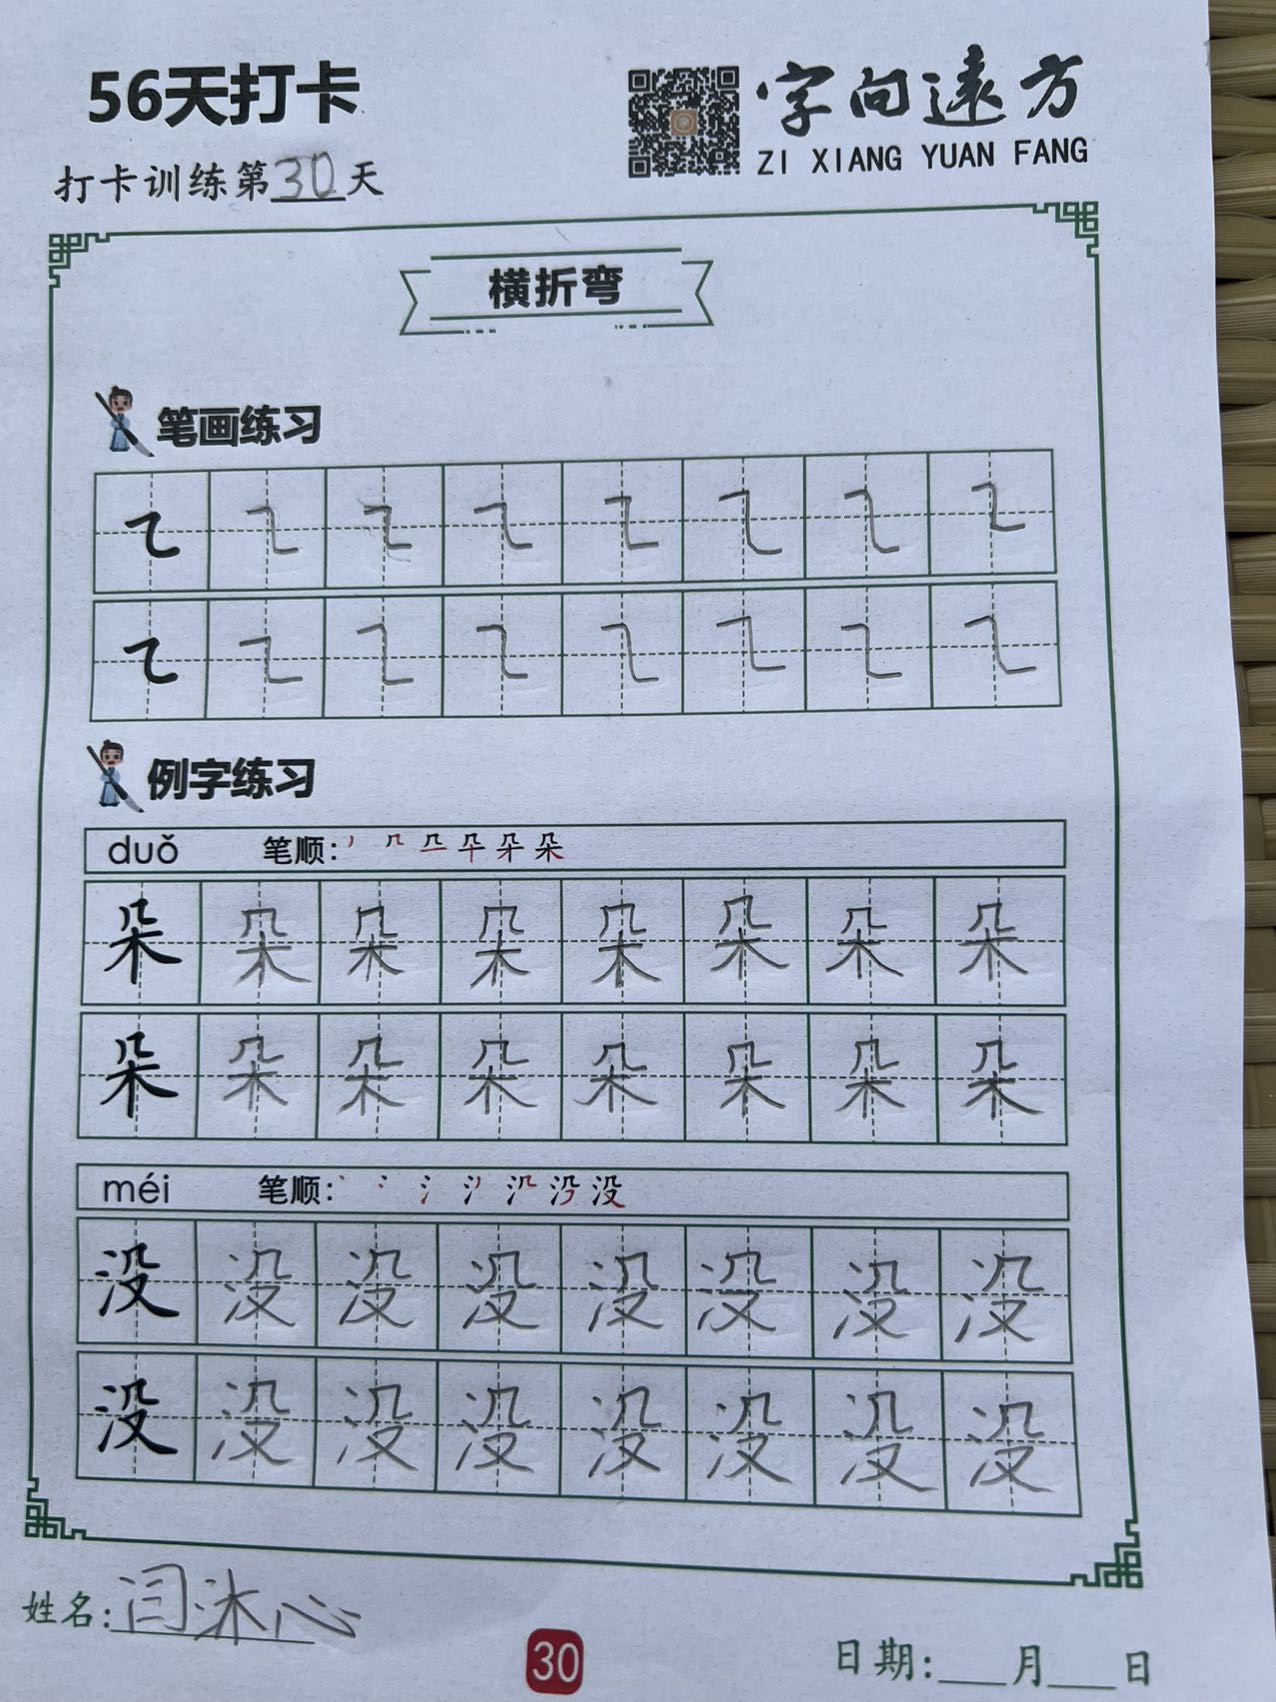 56天打卡
字向遠方
ZI XIANG YUAN FANG
打卡训练第30天
横折弯
笔画练习
㇍ ㇍ ㇍ ㇍ ㇍ ㇍ ㇍ ㇍
㇍ ㇍ ㇍ ㇍ ㇍ ㇍ ㇍ ㇍
例字练习
duǒ 笔顺:
朵 朵 朵 朵 朵 朵 朵 朵
朵 朵 朵 朵 朵 朵 朵 朵
méi 笔顺:
没 没 没 没 没 没 没 没
没 没 没 没 没 没 没 没
姓名:闫沐心
30
日期:___月___日